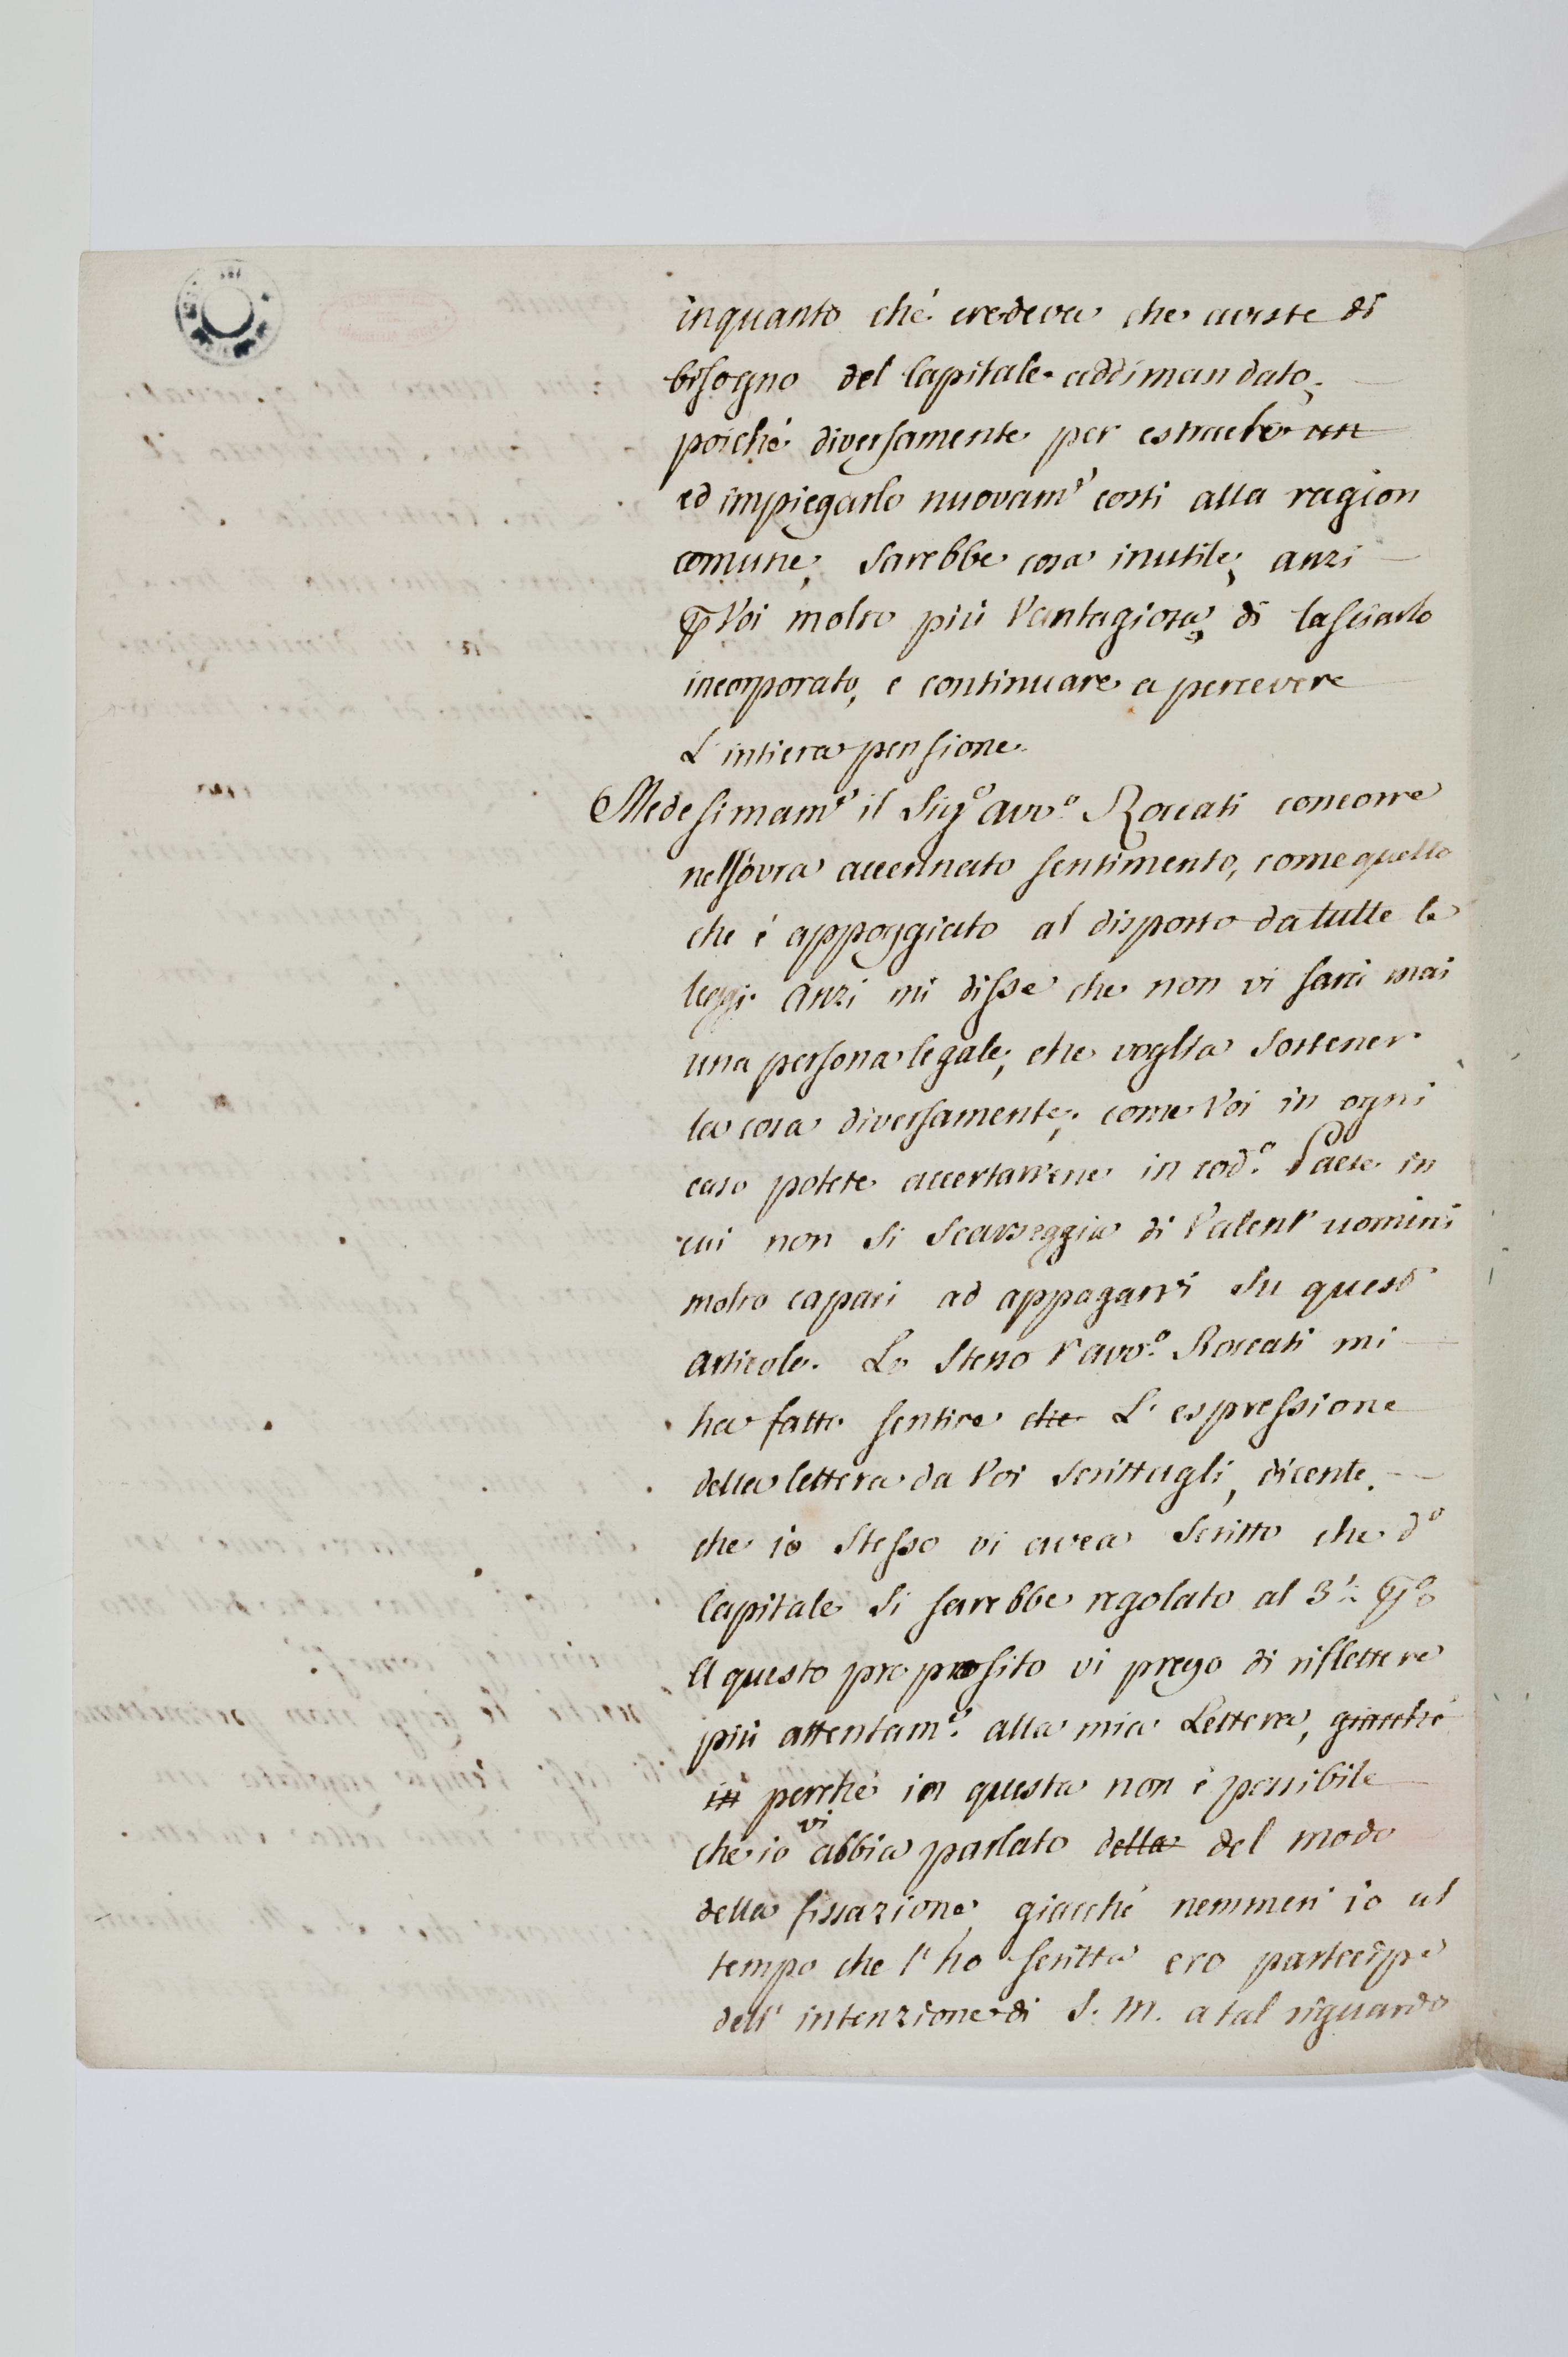 inquanto ché credeva che aveste di
bisogno del Capitale addimandato,
poiché diversamente per estraelo
ed impiegarlo nuovam.e costi alla ragion
comune, sarebbe cosa inutile, anzi
p Voi molto più Vantagiosa, di lasciarlo
incorporato, e continuare a percevere
L'intiera pensione.
Medesimam.e il Sig.r avv.o Roccati concorre
nel sovra accennato sentimento, come quello
che è appoggiato al disposto da tutte le
leggi. Anzi mi disse che non vi sarà mai
una persona legale, che voglia sostener
la cosa diversamente, come Voi in ogni
caso potete accertarvene in cod.o Paese in
cui non si scarseggia di Valent'uomini
molto capaci ad appagarvi su quest'
articolo. Lo stesso l'avv.o Roccati mi
ha fatto sentire che L'espressione
della lettera da Voi scrittagli, dicente,
che io stesso vi avea scritto che d.o
Capitale si sarebbe regolato al 3
A questo proposito vi prego di riflettere
più attentam.e alla mia Lettera, giacché
in perché in questa non è possibile
vi
che io abbia parlato della del modo
della fissazione, giacché nemmen io al
tempo che l'ho scritta ero partecipe
dell'intenzione di S. M. a tal riguardo